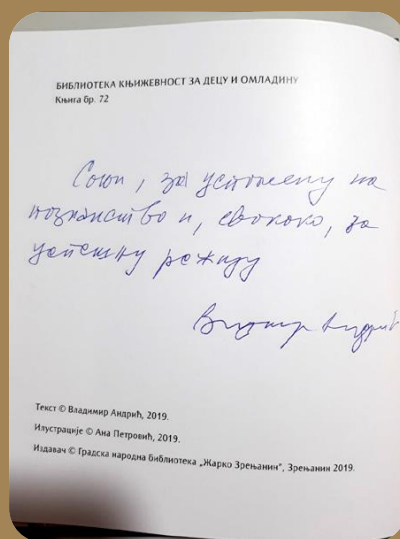 БИБЛИОТЕКА КЊИЖЕВНОСТ ЗА ДЕЦУ И ОМЛАДИНУ
Књига бр. 72
за успомену на
познанство и, свакако, за
успешну режију
Владимир Андрић
Текст © Владимир Андрић, 2019.
Илустрације © Ана Петровић, 2019.
Издавач © Градска народна библиотека „Жарко Зрењанин“, Зрењанин 2019.